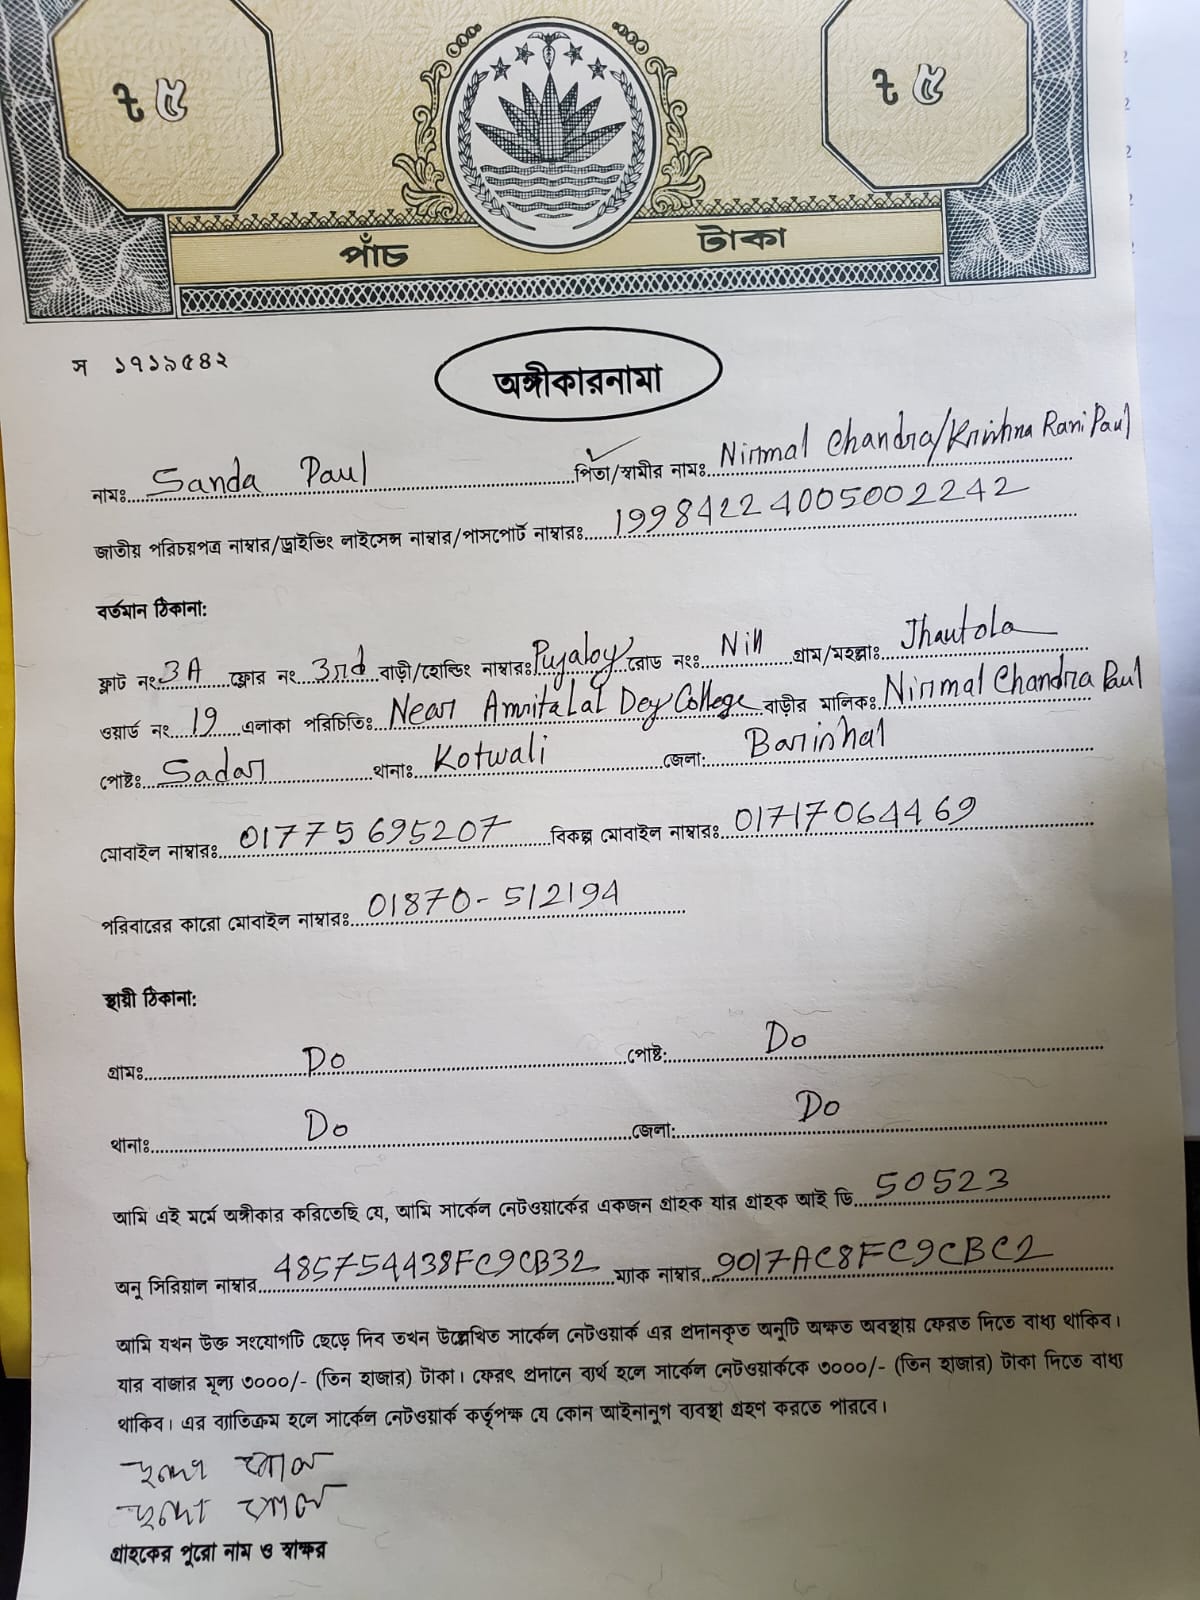 ৳ ৫
৳ ৫
পাঁচ টাকা
স ১৭১৯৫৪২
অঙ্গীকারনামা
নামঃ Sanda Paul পিতা/স্বামীর নামঃ Nirmal Chandra/Krishna Rani Paul
জাতীয় পরিচয়পত্র নাম্বার/ড্রাইভিং লাইসেন্স নাম্বার/পাসপোর্ট নাম্বারঃ 19984224005002242
বর্তমান ঠিকানা:
ফ্লাট নং 3A ফ্লোর নং 3rd বাড়ী/হোল্ডিং নাম্বারঃ Pujaloy রোড নংঃ Nill গ্রাম/মহল্লাঃ Jhautola
ওয়ার্ড নং 19 এলাকা পরিচিতিঃ Near Amrita Lal Dey College বাড়ীর মালিকঃ Nirmal Chandra Paul
পোষ্টঃ Sadar থানাঃ Kotwali জেলা: Barishal
মোবাইল নাম্বারঃ 01775695207 বিকল্প মোবাইল নাম্বারঃ 01717064469
পরিবারের কারো মোবাইল নাম্বারঃ 01870-512194
স্থায়ী ঠিকানা:
গ্রামঃ Do পোষ্ট: Do
থানাঃ Do জেলা: Do
আমি এই মর্মে অঙ্গীকার করিতেছি যে, আমি সার্কেল নেটওয়ার্কের একজন গ্রাহক যার গ্রাহক আই ডি 50523
অনু সিরিয়াল নাম্বার 485754438FC9CB32 ম্যাক নাম্বার 9017AC8FC9CBC2
আমি যখন উক্ত সংযোগটি ছেড়ে দিব তখন উল্লেখিত সার্কেল নেটওয়ার্ক এর প্রদানকৃত অনুটি অক্ষত অবস্থায় ফেরত দিতে বাধ্য থাকিব।
যার বাজার মূল্য ৩০০০/- (তিন হাজার) টাকা। ফেরৎ প্রদানে ব্যর্থ হলে সার্কেল নেটওয়ার্ককে ৩০০০/- (তিন হাজার) টাকা দিতে বাধ্য
থাকিব। এর ব্যাতিক্রম হলে সার্কেল নেটওয়ার্ক কর্তৃপক্ষ যে কোন আইনানুগ ব্যবস্থা গ্রহণ করতে পারবে।
গ্রাহকের পুরো নাম ও স্বাক্ষর